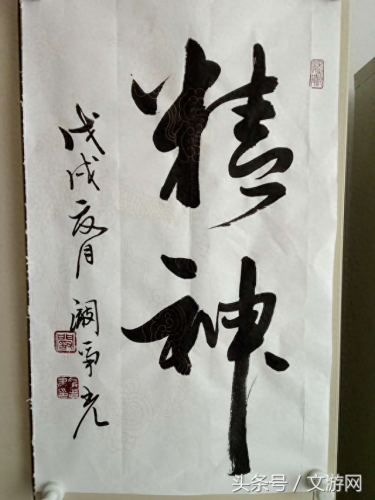 精神
戊戌夏月 阚争光
头条号／文游网